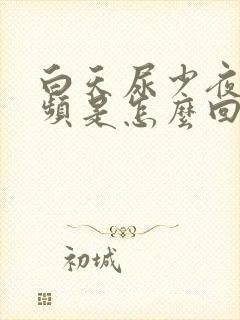 白天尿少夜
頻是怎麼回
初城